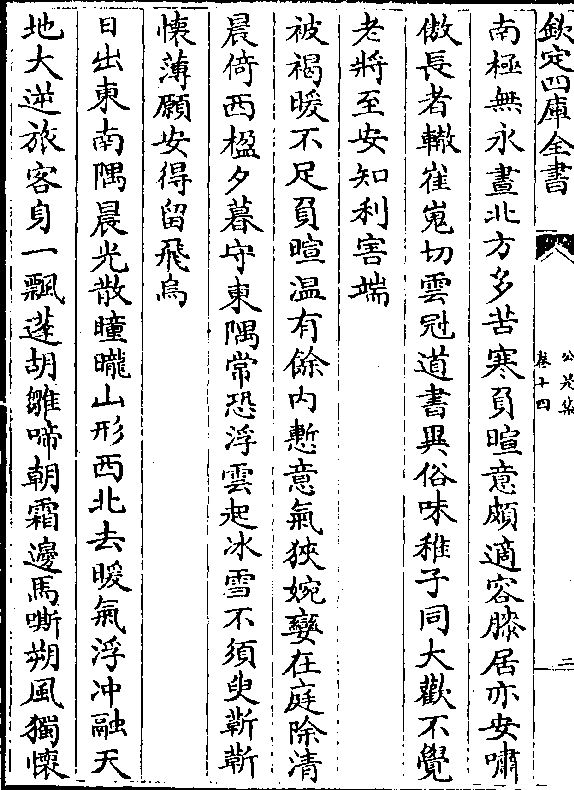 欽定四庫全書
公是集
卷十四
二
南極無永晝北方多苦寒負暄意頗適容膝居亦安嘯
傲長者轍崔嵬切雲冠道書異俗味稚子同大歡不覺
老將至安知利害端
被褐暖不足負暄温有餘内慙意氣狹婉孌在庭除清
晨倚西楹夕暮守東隅常恐浮雲起冰雪不須臾蘄蘄
懐薄願安得留飛烏
日出東南隅晨光散曈曨山形西北去暖氣浮冲融天
地大逆旅客身一飄蓬胡雛啼朝霜邊馬嘶朔風獨懐